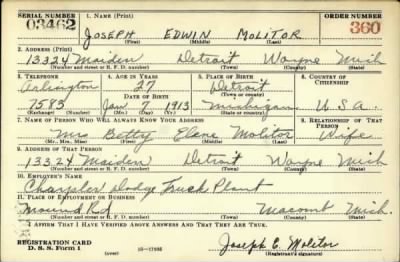 SERIAL NUMBER 1. NAME (Print) ORDER NUMBER
03462 JOSEPH EDWIN MOLITOR 360
(First) (Middle) (Last)
2. ADDRESS (Print)
13324 Maiden Detroit Wayne Mich
(Number and street or R. F. D. number) (Town) (County) (State)
3. TELEPHONE 4. AGE IN YEARS 5. PLACE OF BIRTH 6. COUNTRY OF CITIZENSHIP
Arlington 27 Detroit
(Town or county)
DATE OF BIRTH
7585 Jan 7 1913 Michigan U.S.A.
(Exchange) (Number) (Mo.) (Day) (Yr.) (State or country)
7. NAME OF PERSON WHO WILL ALWAYS KNOW YOUR ADDRESS 8. RELATIONSHIP OF THAT PERSON
Mrs Betty Elane Molitor Wife
(Mr., Mrs., Miss) (First) (Middle) (Last)
9. ADDRESS OF THAT PERSON
13324 Maiden Detroit Wayne Mich
(Number and street or R. F. D. number) (Town) (County) (State)
10. EMPLOYER'S NAME
Chrysler Dodge Truck Plant
11. PLACE OF EMPLOYMENT OR BUSINESS
Mound Rd Macomb Mich.
(Number and street or R. F. D. number) (Town) (County) (State)
I AFFIRM THAT I HAVE VERIFIED ABOVE ANSWERS AND THAT THEY ARE TRUE.
REGISTRATION CARD
D. S. S. Form 1 (over) 16—17105 Joseph E. Molitor
(Registrant's signature)